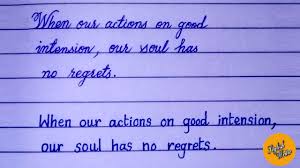 When our actions on good
intension, our soul has
no regrets.
When our actions on good intension,
our soul has no regrets.